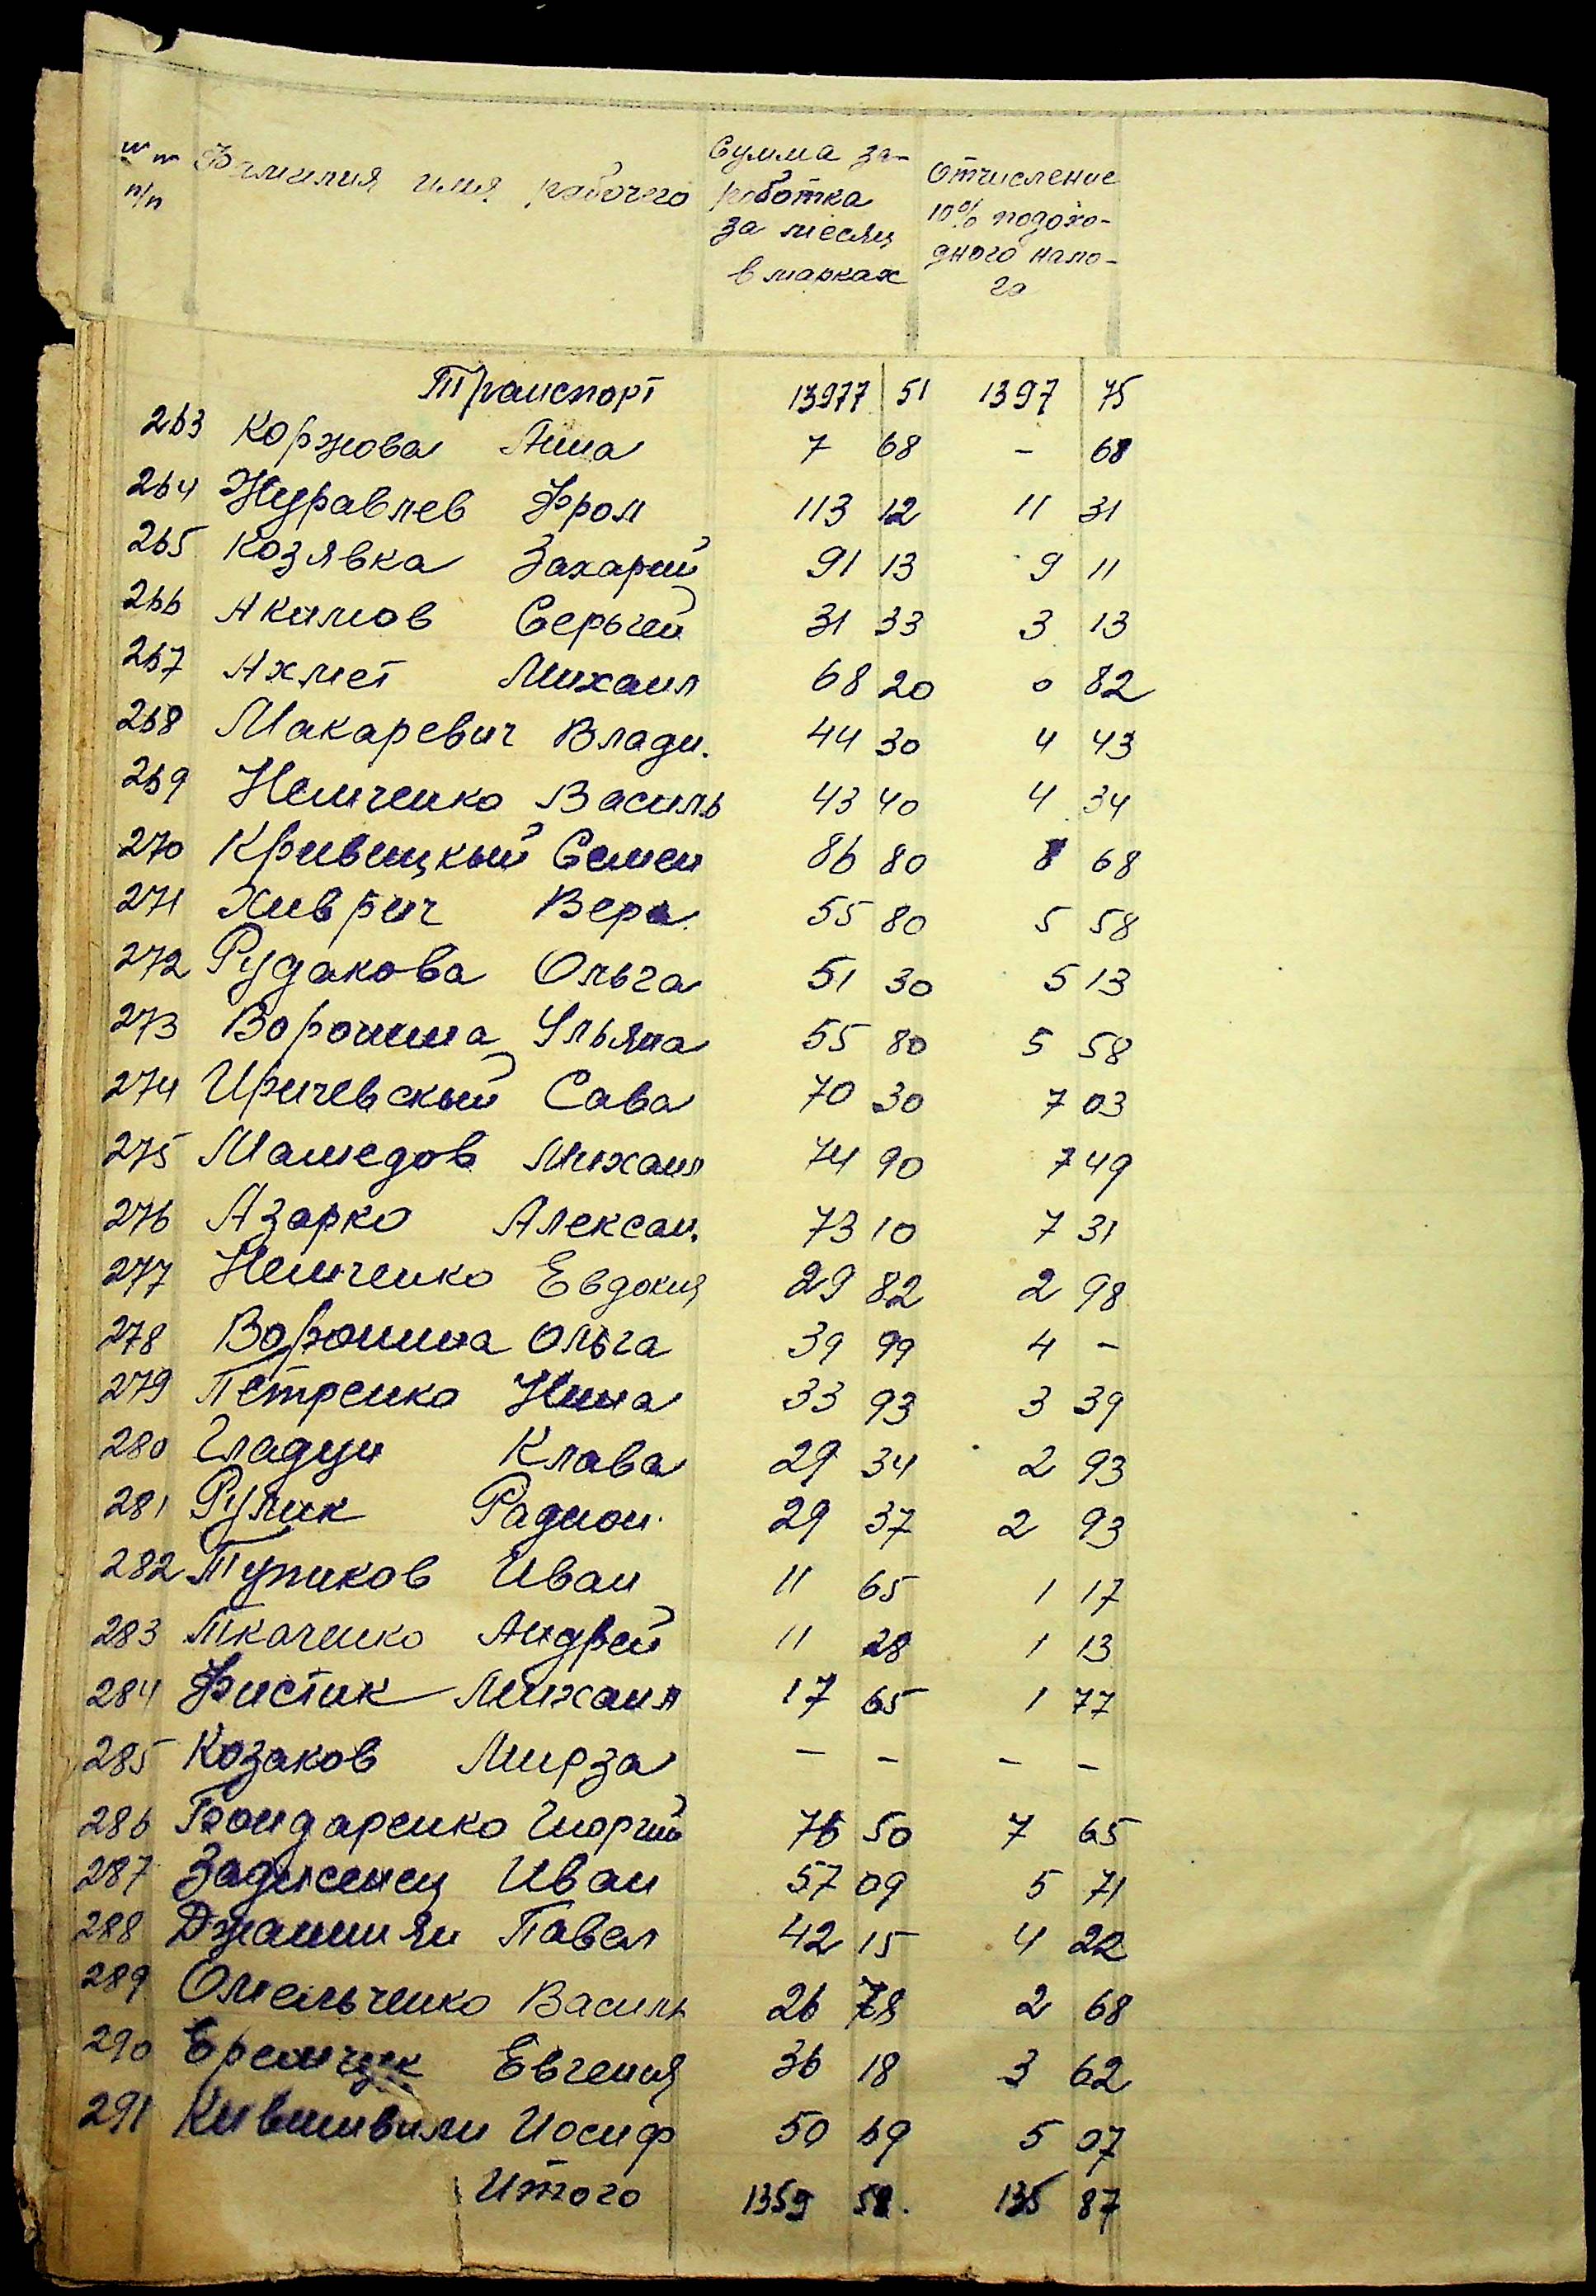 № № п/п Фамилия имя рабочего Сумма за- Отчисление
работка 10% подохо-
за месяц дного нало-
в марках га
Транспорт 13977 51 1397 75
263 Коржова Анна 7 68 - 68
264 Журавлев Фрол 113 12 11 31
265 Козявка Захарий 91 13 9 11
266 Акимов Серьгей 31 33 3 13
267 Ахмет Михаил 68 20 0 82
268 Макаревич Влади. 44 30 4 43
269 Немченко Василь 43 40 4 34
270 Кривицкый Семен 86 80 8 68
271 Хиврич Вера 55 80 5 58
272 Рудакова Ольга 51 30 5 13
273 Воронина Ульяна 55 80 5 58
274 Иричевский Сава 70 30 7 03
275 Мамедов Михаил 74 90 7 49
276 Азарко Алексан. 73 10 7 31
277 Немченко Евдокия 29 82 2 98
278 Воронина Ольга 39 99 4 -
279 Петренко Нина 33 93 3 39
280 Гладун Клава 29 34 2 93
281 Рулик Радион 29 37 2 93
282 Тупиков Иван 11 65 1 17
283 Ткаченко Андрей 11 28 1 13
284 Фистик Михаил 17 65 1 77
285 Козаков Мирза - - - -
286 Бондаренко Гиоргий 76 50 7 65
287 Задиженец Иван 57 09 5 71
288 Джаншиян Павел 42 15 4 22
289 Омельченко Василь 26 78 2 68
290 Еремчук Евгения 36 18 3 62
291 Кившивили Иосиф 50 69 5 07
Итого 1359 58. 135 87